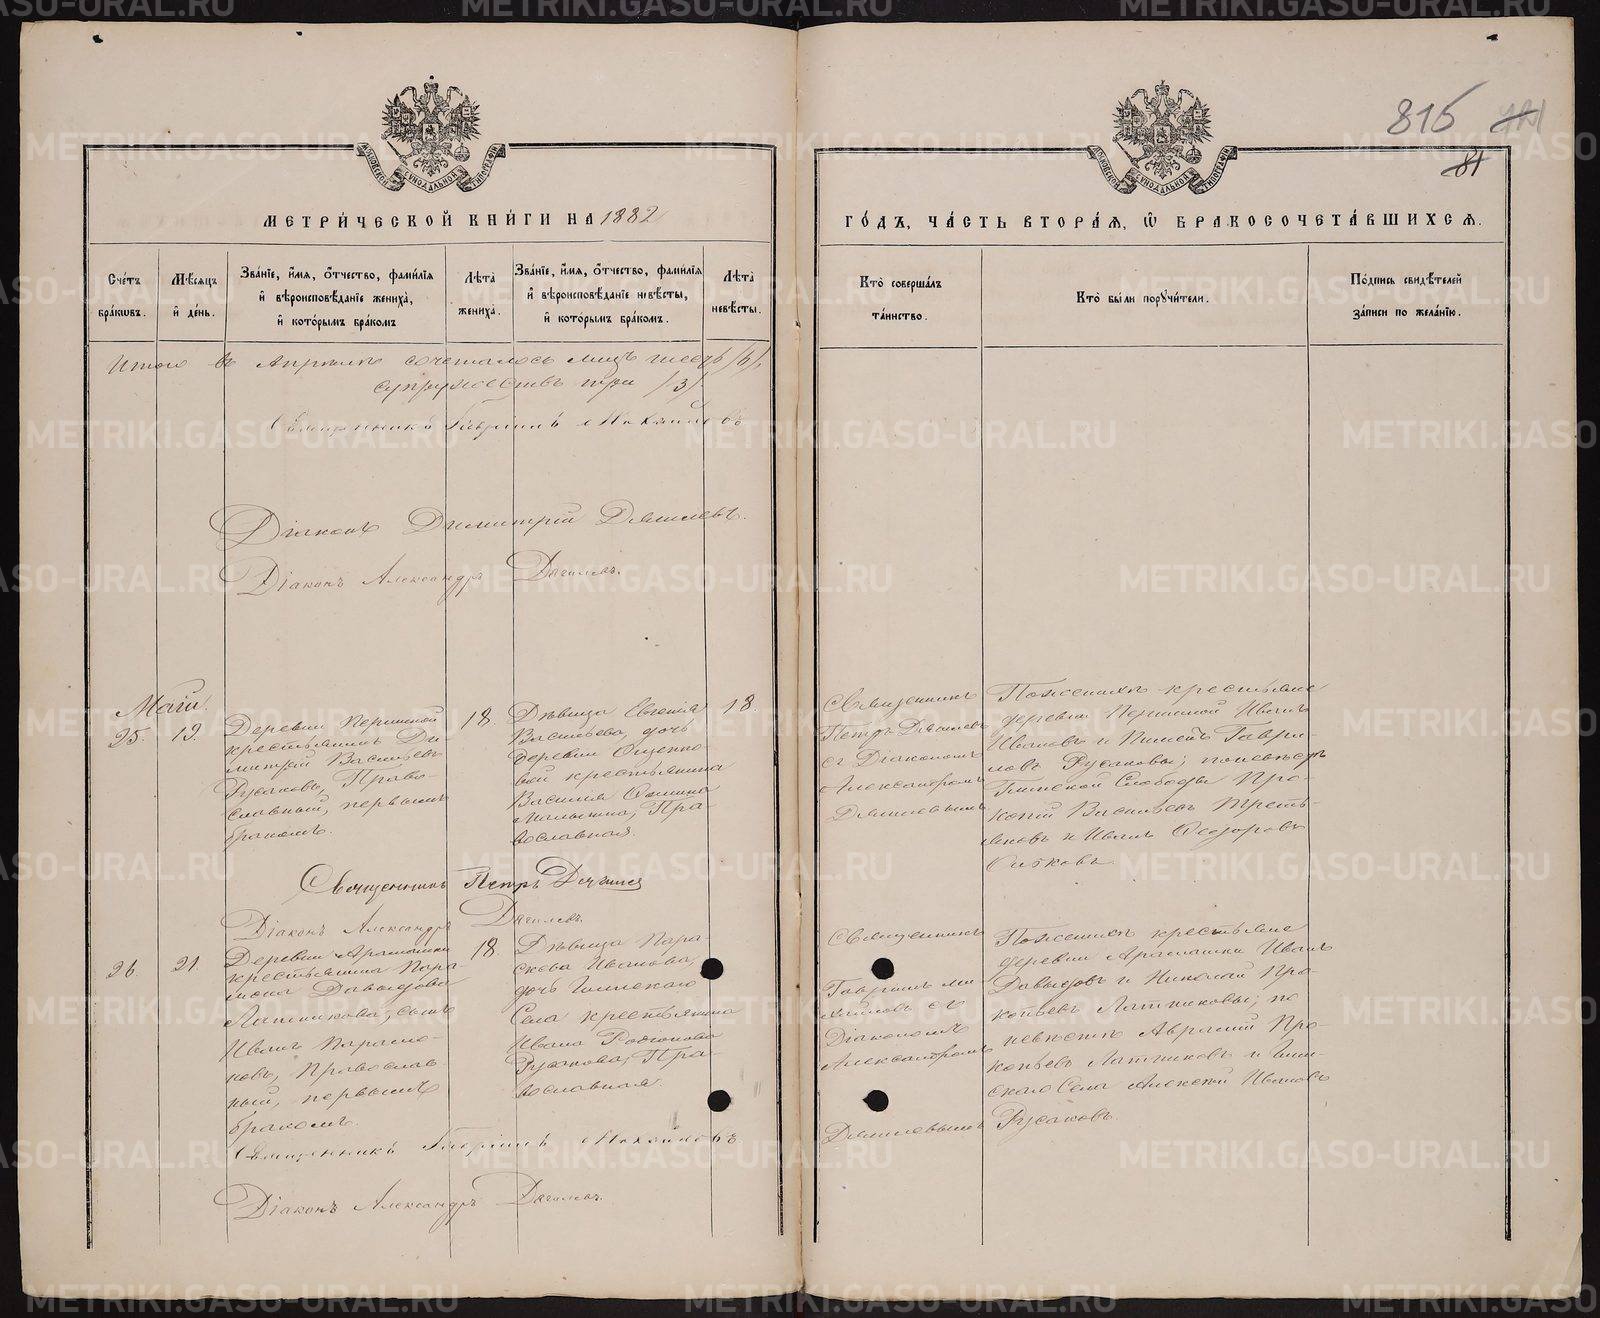 815
81
МОСКОВСКОЙ СѴНОДАЛЬНОЙ ТИПОГРАФІИ
МОСКОВСКОЙ СѴНОДАЛЬНОЙ ТИПОГРАФІИ
МЕТРИ́ЧЕСКОЙ КНИ́ГИ НА 1882
ГО́ДЪ, ЧА́СТЬ ВТОРА́Я, Ѽ БРАКОСОЧЕТА́ВШИХСЯ.
Сче́тъ
бра́кѡвъ.
Мѣ́сяцъ
и҆ де́нь.
Зва́нїе, и҆́мя, ѻ҆́тчество, фами́лїя
и҆ вѣроисповѣ́данїе жениха̀,
и҆ кото́рымъ бра́комъ
Лѣ́та
жениха.
Зва́нїе, и҆́мя, ѻ҆́тчество, фами́лїя
и҆ вѣроисповѣ́данїе невѣ́сты,
и҆ кото́рымъ бра́комъ.
Лѣ́та
невѣ́сты.
Кто̀ соверша́лъ
та́инство.
Кто̀ бы́ли порꙋчи́тели.
По́дпись свидѣ́телей
за́писи по жела́нїю.
Итого въ Апрѣлѣ сочеталось лицъ шесть /6/,
супружествъ три /3/.
Священникъ Гавріилъ Михайловъ
Діаконъ Димитрій Дягилевъ.
Діаконъ Александръ Дягилевъ.
Маій.
25.
19.
Деревни Першиной
крестьянинъ Ди-
митрій Васильевъ
Русаковъ, Право-
славный, первымъ
бракомъ.
18.
Дѣвица Евгенія
Васильева, дочь
деревни Ощепко-
вой крестьянина
Василія
Право-
вославная.
18.
Священникъ
Петръ Дягилевъ
съ Діакономъ
Александромъ
Дягилевымъ
По женихѣ крестьяне
деревни Першиной Иванъ
Ивановъ и Пименъ Гаври-
ловъ Русаковы; по невѣстѣ
Слободы Про-
копій Васильевъ Треть-
яковъ и Иванъ Ѳедоровъ
Священникъ Петръ Дягилевъ
Діаконъ Александръ Дягилевъ.
26.
21.
Деревни Арамашки
крестьянина Пара-
мона Давыдова
Латникова, сынъ
Иванъ Парамо-
новъ, Православ-
ный, первымъ
бракомъ.
18.
Дѣвица Пара-
скева Иванова,
дочь Глинскаго
Села крестьянина
Ивана Родіонова
Русакова, Пра-
вославная.
Священникъ
Гавріилъ Ми-
хайловъ съ
Діакономъ
Александромъ
Дягилевымъ
По женихѣ крестьяне
деревни Арамашки Иванъ
Давыдовъ и Николай Про-
копьевъ Латниковы; по
невѣстѣ Аврамій Про-
копьевъ Латниковъ и Глин-
скаго Села Алексѣй Ивановъ
Русаковъ.
Священникъ Гавріилъ Михайловъ
Діаконъ Александръ Дягилевъ.
METRIKI.GASO-URAL.RU